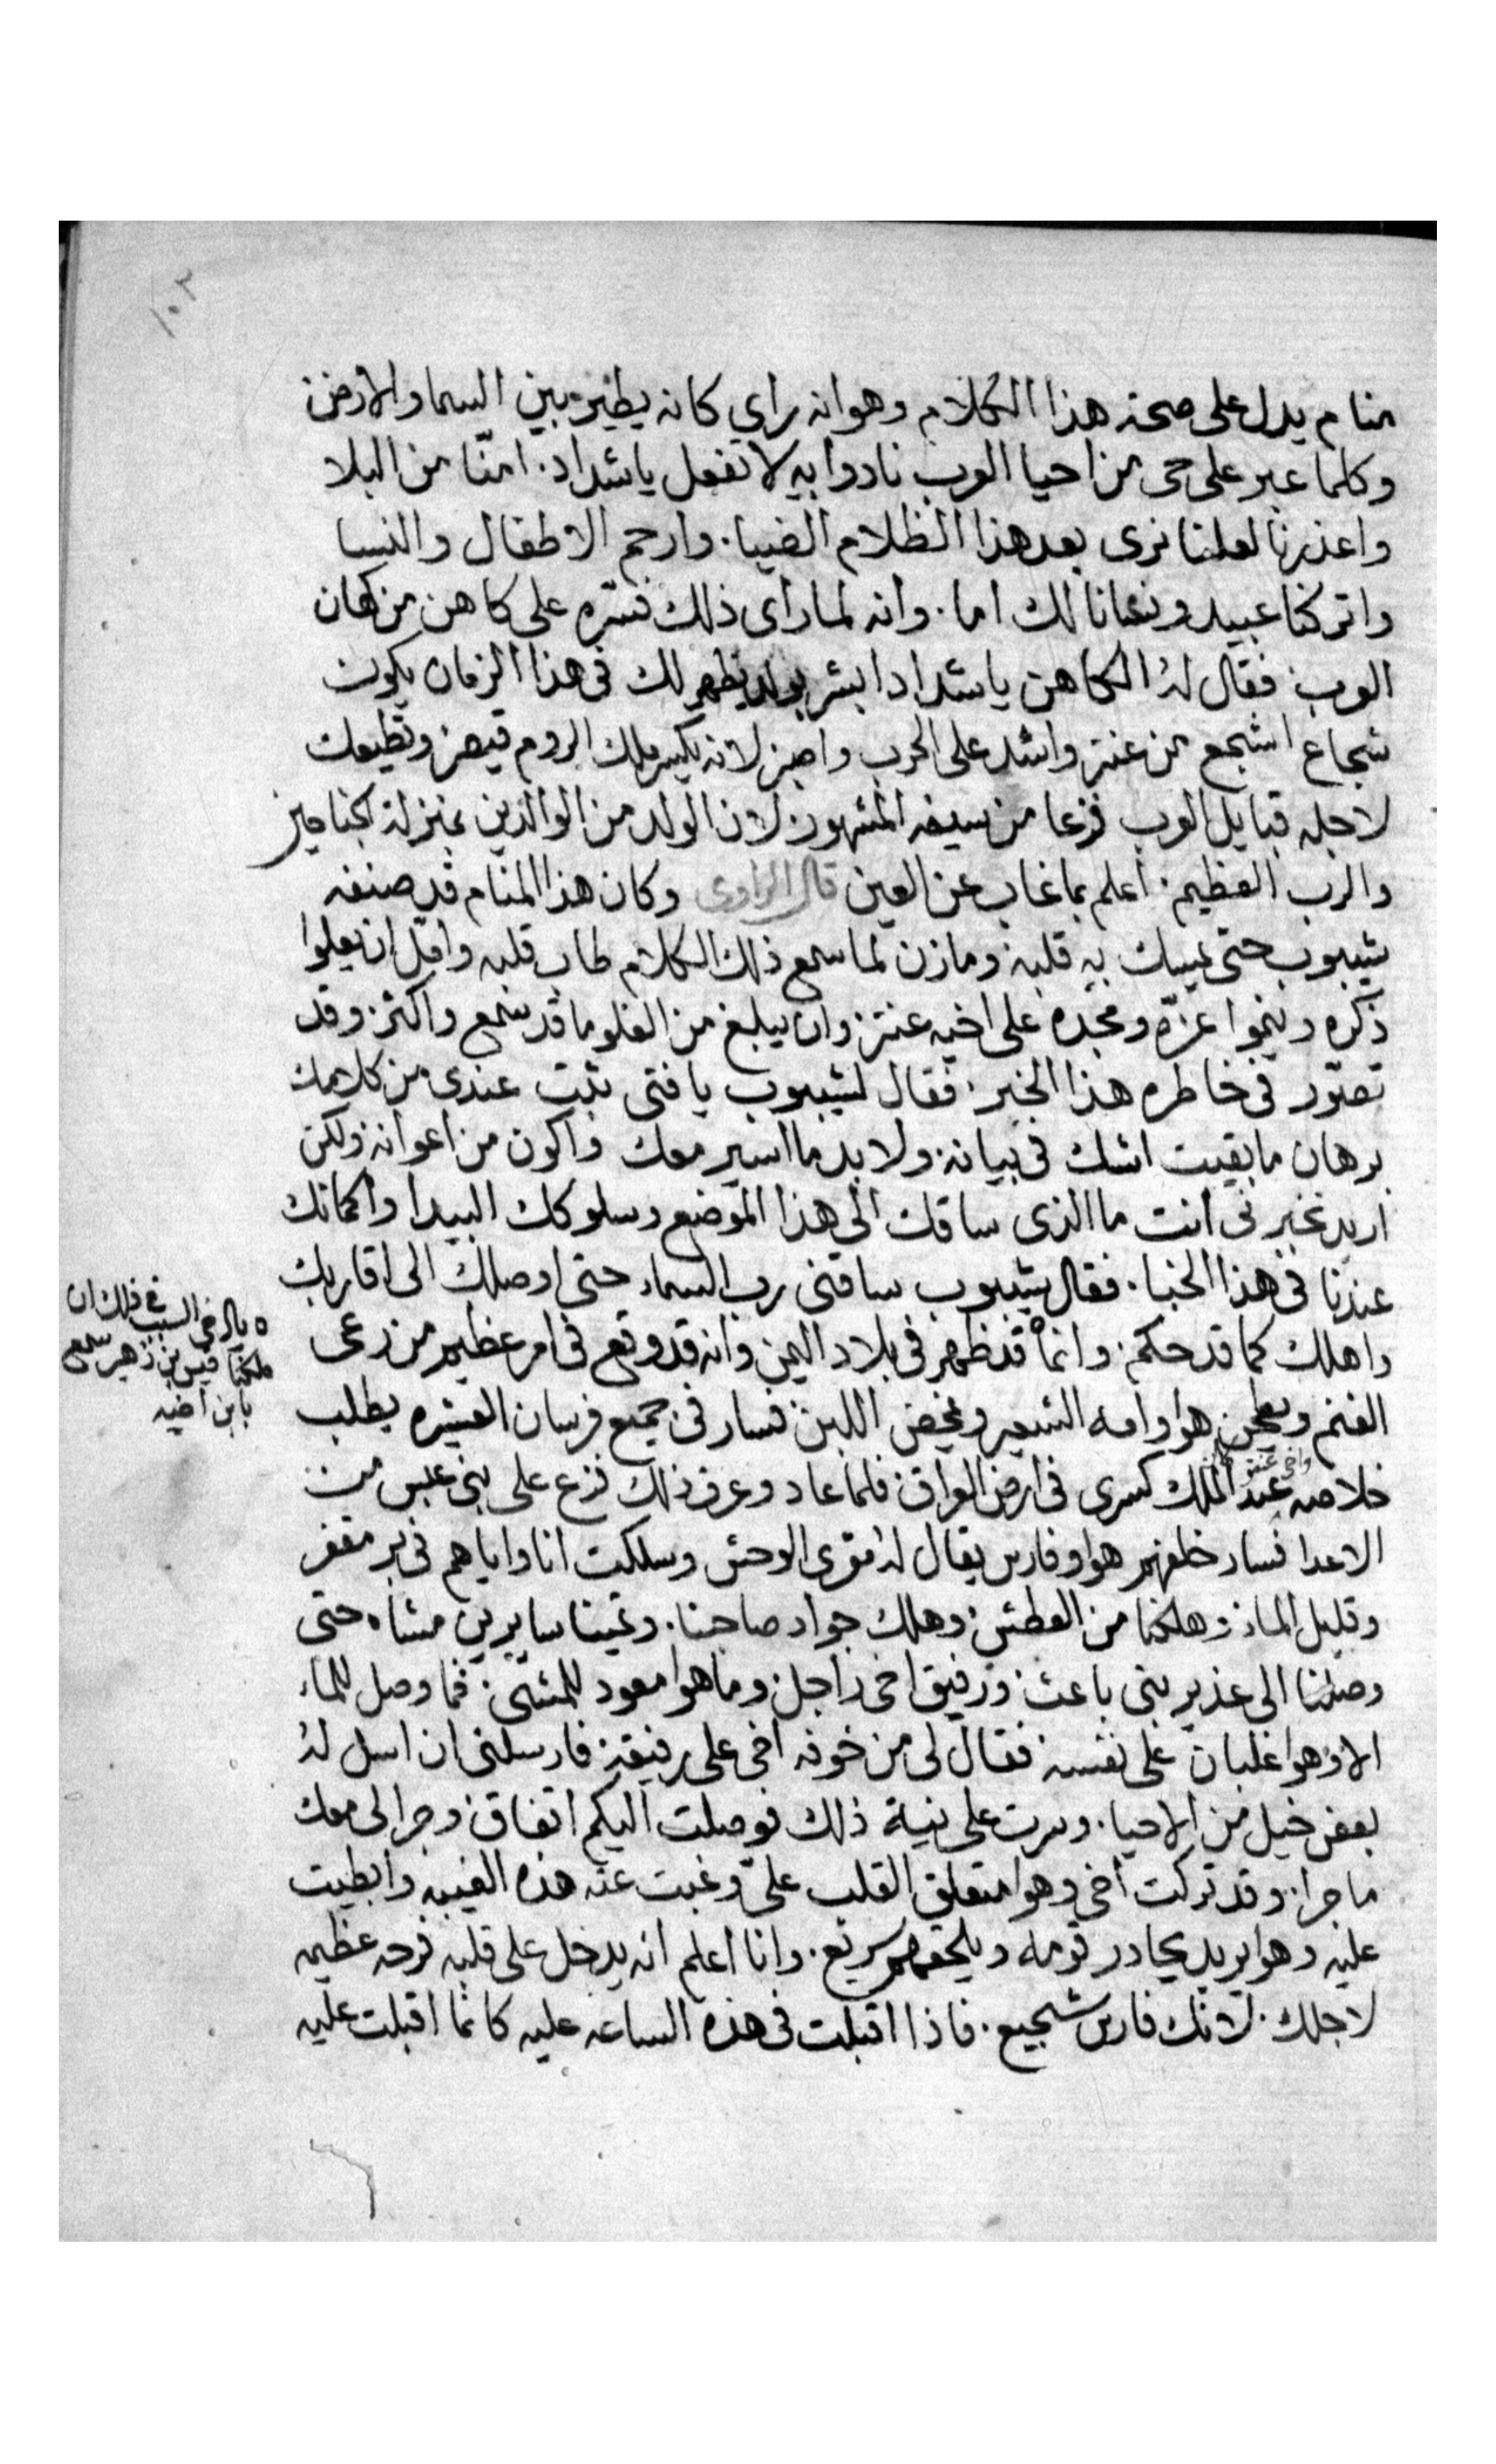 ١٠٣
منام يدل على صحة هذا الكلام وهو انه راي كانه يطير بين السما والارض
وكلما عبر على حى من احيا العرب نادوا به لا تفعل يا شداد. امنّا من البلا
واعذرنا لعلنا نرى بعد هذا الظلام الضيا. وارحم الاطفال والنسا
واتركنا عبيد ونسانا لك اما. وانه لما راى ذلك فسّره على كاهن من كهان
العرب. فقال له الكاهن يا شداد ابشر بولد يظهر لك فى هذا الزمان يكون
شجاع اشجع من عنتر واشد على الحرب واصبر لانه يكسر ملك الروم قيصر وتطيعك
لاجله قبايل العرب فزعا من سيفه المشهور. لان الولد من الوالدين بمنزلة الجناحين
والرب العظيم. اعلم بما غاب عن العين قال الراوى وكان هذا المنام قد صنفه
شيبوب حتى يمسك به قلبه. ومازن لما سمع ذلك الكلام طاب قلبه وامّل ان يعلوا
ذكره وينموا عزّه ومجده على اخيه عنتر. وان يبلغ من العلو ما قد سمع واكثر. وقد
تصوّر فى خاطره هذا الخبر. فقال لشيبوب يا فتى ثبت عندى من كلامك
برهان ما بقيت اشك فى بيانه. ولا بد ما اسير معك واكون من اعوانه ولكن
اريد تخبرنى انت ما الذى ساقك الى هذا الموضع وسلوكك البيدا واكمانك
عندنا فى هذا الخبا. فقال شيبوب ساقنى رب السماء حتى اوصلك الى اقاربك
واهلك كما قد حكم. وانما قد ظهر فى بلاد اليمن وانه قد وقع فى امر عظيم من رعى
ه يا اخى السبب فى ذلك ان
ملكنا قيس بن زهير سمع
بابن اخيه
الغنم ويطحن هوا وامه الشعير ونخيض اللبن فسار فى جميع فرسان العشيره يطلب
خلاصه واخى عنتر عند الملك كسرى فى ارض العراق فلما عاد وعرف ذلك فزع على بنى عبس من
الاعدا فسار خلفهم هوا وفارس يقال له مقرى الوحش وسلكت انا واياهم فى بر مقفر
وقليل الماء. وهلكنا من العطش. وهلك جواد صاحبنا. وتمينا سايرين مشاه حتى
وصلنا الى غدير بنى باعث. ورفيق اخى راجل. وما هوا معود للمشى. فما وصل للماء
الا وهوا غلبان على نفسه فقال لى من خوفه اخى على رفيقه. فارسلنى ان اسل له
بعض خيل من الاحيا. وسرت على نية ذلك فوصلت اليكم اتفاق. وجرا لى معك
ما جرا. وقد تركت اخى وهوا متعلق القلب علىّ وغبت عنه هذه الغيبه وابطيت
عليه وهوا يريد يحادر قومه ويلحقهم سريع. وانا اعلم انه يدخل على قلبه فرحه عظيمه
لاجلك. لانك فارس شجيع. فاذا اقبلت فى هذه الساعه عليه كانما اقبلت عليه